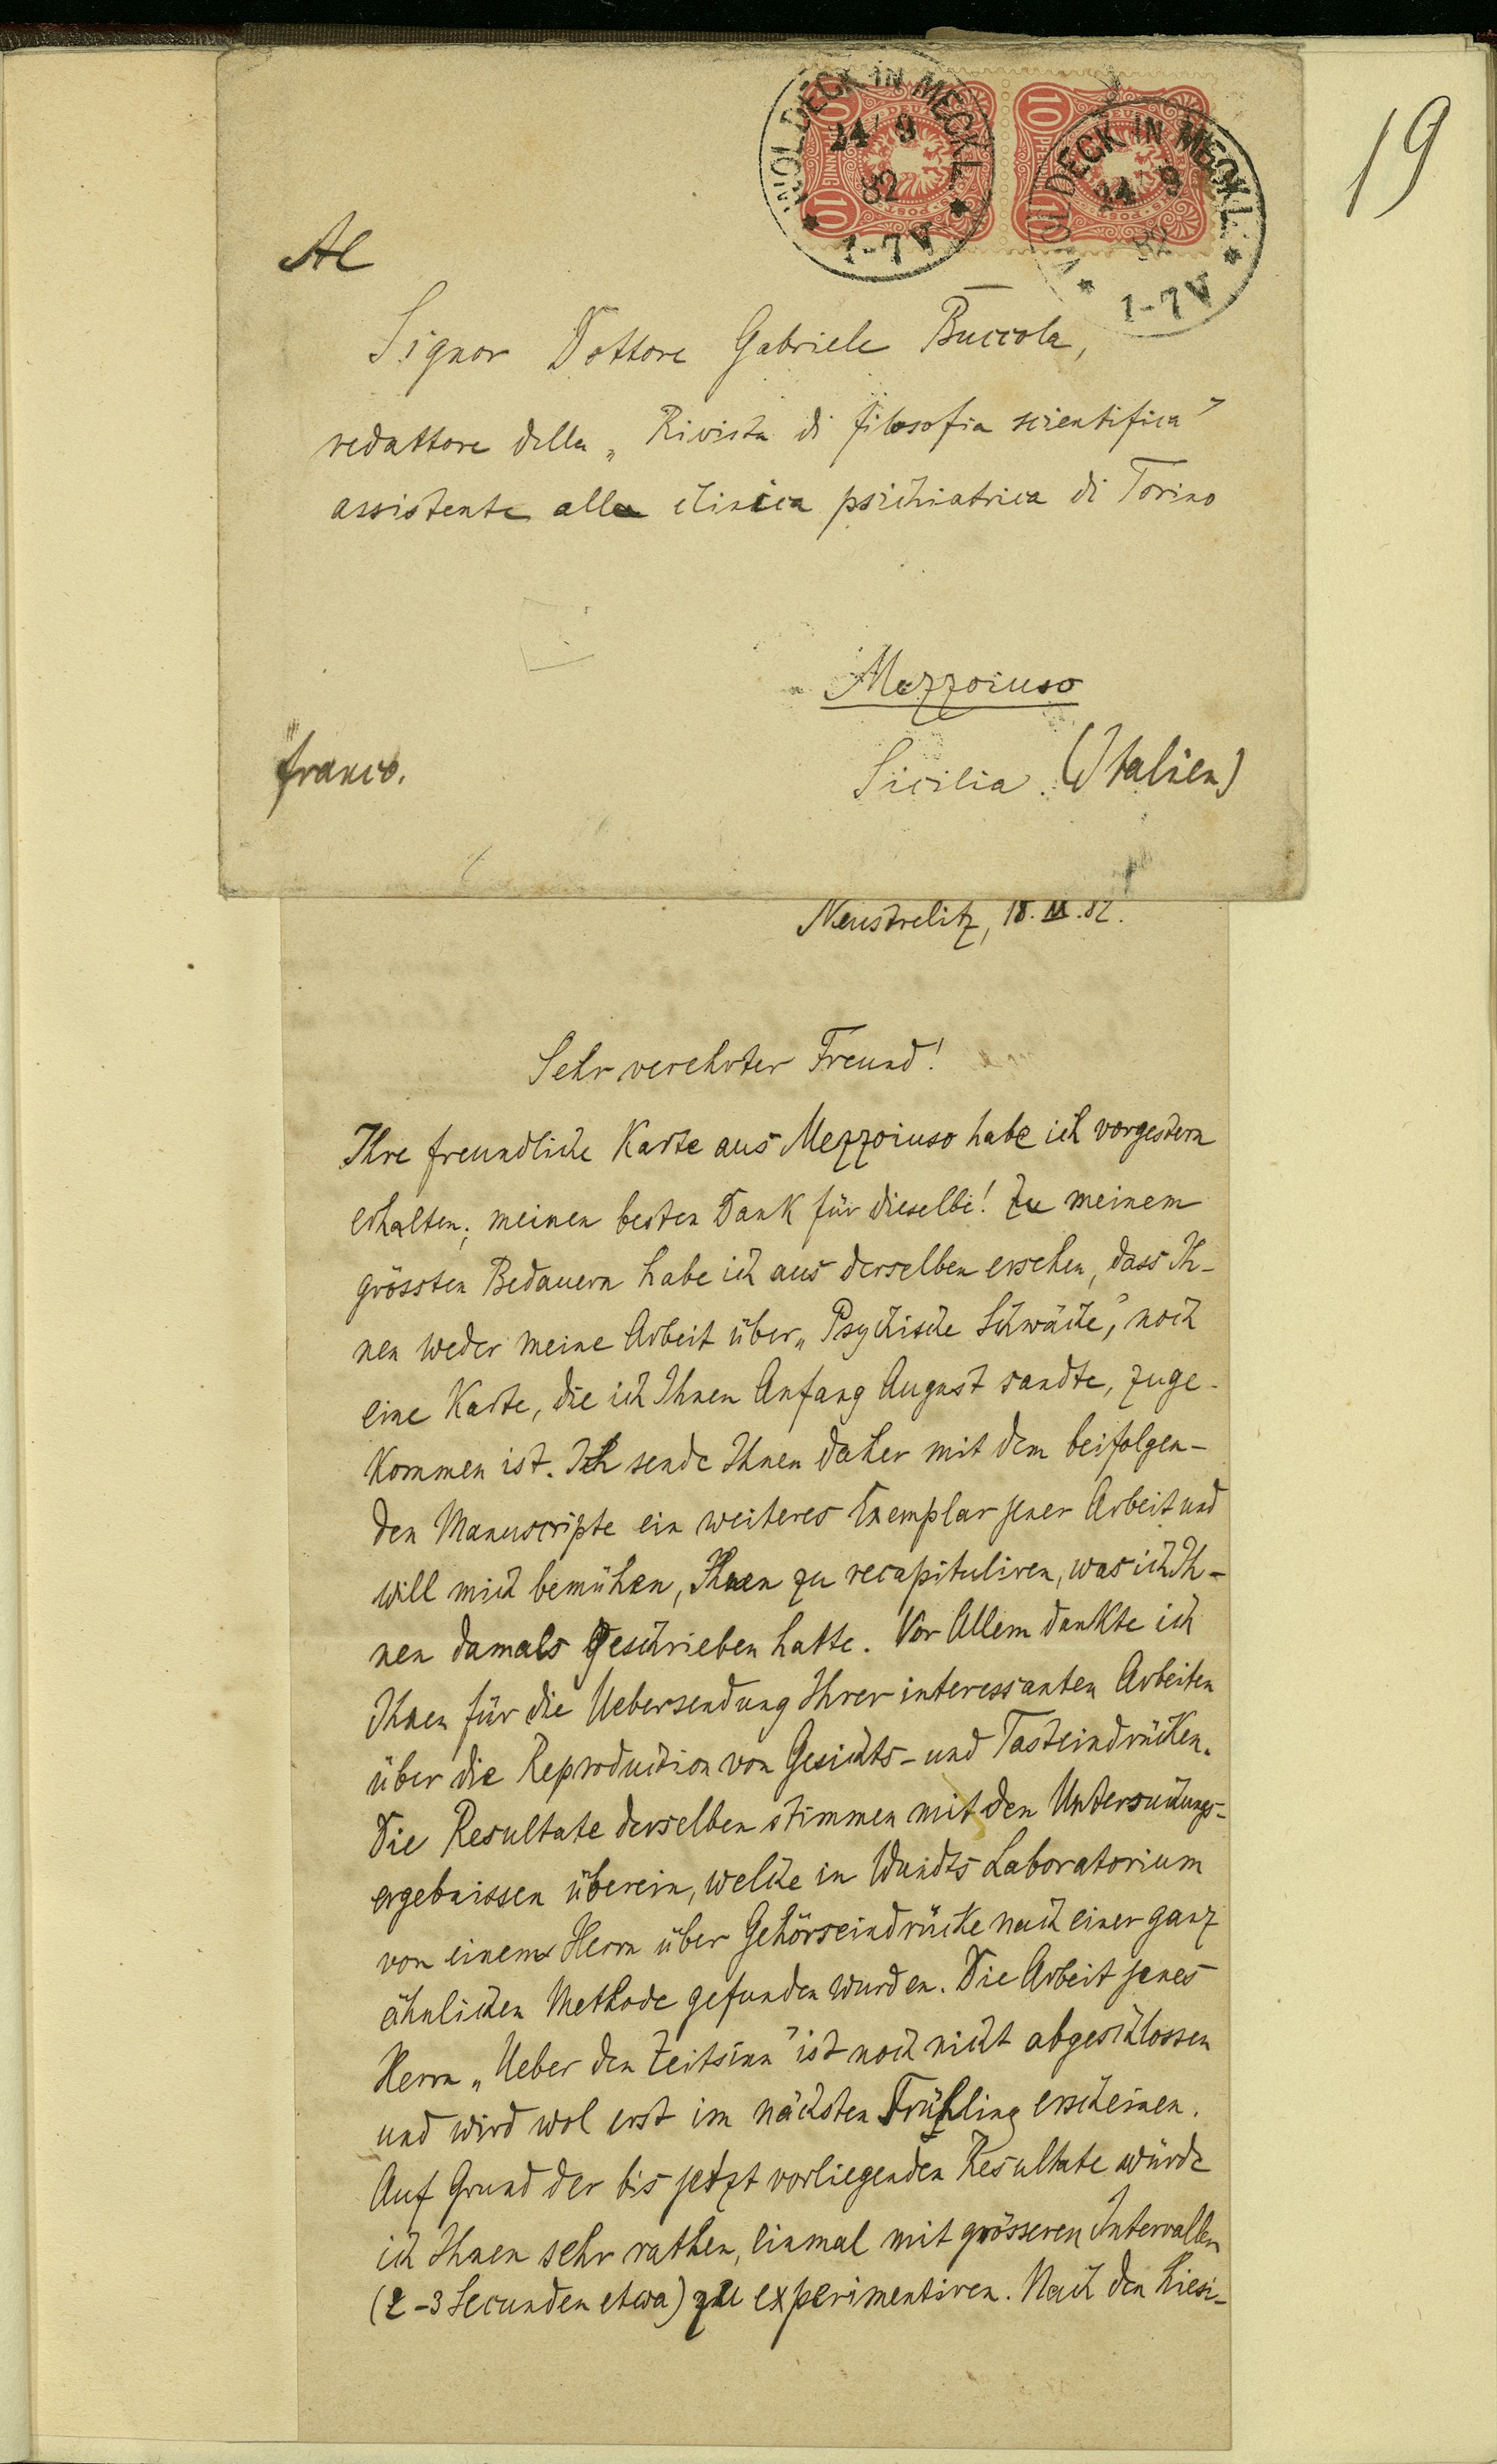 19
WOLDECK IN MECKL.
24/9
82
1-7V
WOLDECK IN MECKL.
24/9
82
1-7V
10
10
10
10
Al
Signor Dottore Gabriele Buccola,
redattore della „Rivista di filosofia scientifica”
assistente alla clinica psichiatrica di Torino
Mezzoiuso
franco.
Sicilia. (Italien)
Neustrelitz, 18. IX. 82.
Sehr verehrter Freund!
Ihre freundliche Karte aus Mezzoiuso habe ich vorgestern
erhalten; meinen besten Dank für dieselbe! Zu meinem
grössten Bedauern habe ich aus derselben ersehen, dass Ih-
nen weder meine Arbeit über „Psychische Schwäche,” noch
eine Karte, die ich Ihnen Anfang August sandte, zuge-
kommen ist. Ich sende Ihnen daher mit dem beifolgen-
den Manuscripte ein weiteres Exemplar jener Arbeit und
will mich bemühen, Ihnen zu recapituliren, was ich Ih-
nen damals geschrieben hatte. Vor Allem dankte ich
Ihnen für die Uebersendung Ihrer interessanten Arbeiten
über die Reproduction von Gesichts- und Tasteindrücken.
Die Resultate derselben stimmen mit den Untersuchungs-
ergebnissen überein, welche in Wundts Laboratorium
von einem Herrn über Gehörseindrücke nach einer ganz
ähnlichen Methode gefunden wurden. Die Arbeit jenes
Herrn „Ueber den Zeitsinn” ist noch nicht abgeschlossen
und wird wol erst im nächsten Frühling erscheinen.
Auf Grund der bis jetzt vorliegenden Resultate würde
ich Ihnen sehr rathen, einmal mit grösseren Intervallen
(2-3 Secunden etwa) zu experimentiren. Nach den hiesi-